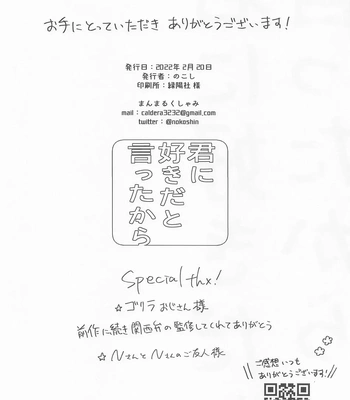 お手にとっていただき ありがとうございます!
発行日：2022年 2月 20日
発行者：のこし
印刷所：緑陽社 様
まんまるくしゃみ
mail：caldera3232@gmail.com
twitter：@nokoshin
君に
好きだと
言ったから
Special thx!
☆ゴリラおじさん様
前作に続き関西弁の監修してくれてありがとう
☆NさんとNさんのご友人様
ご感想いつも
ありがとうございます!